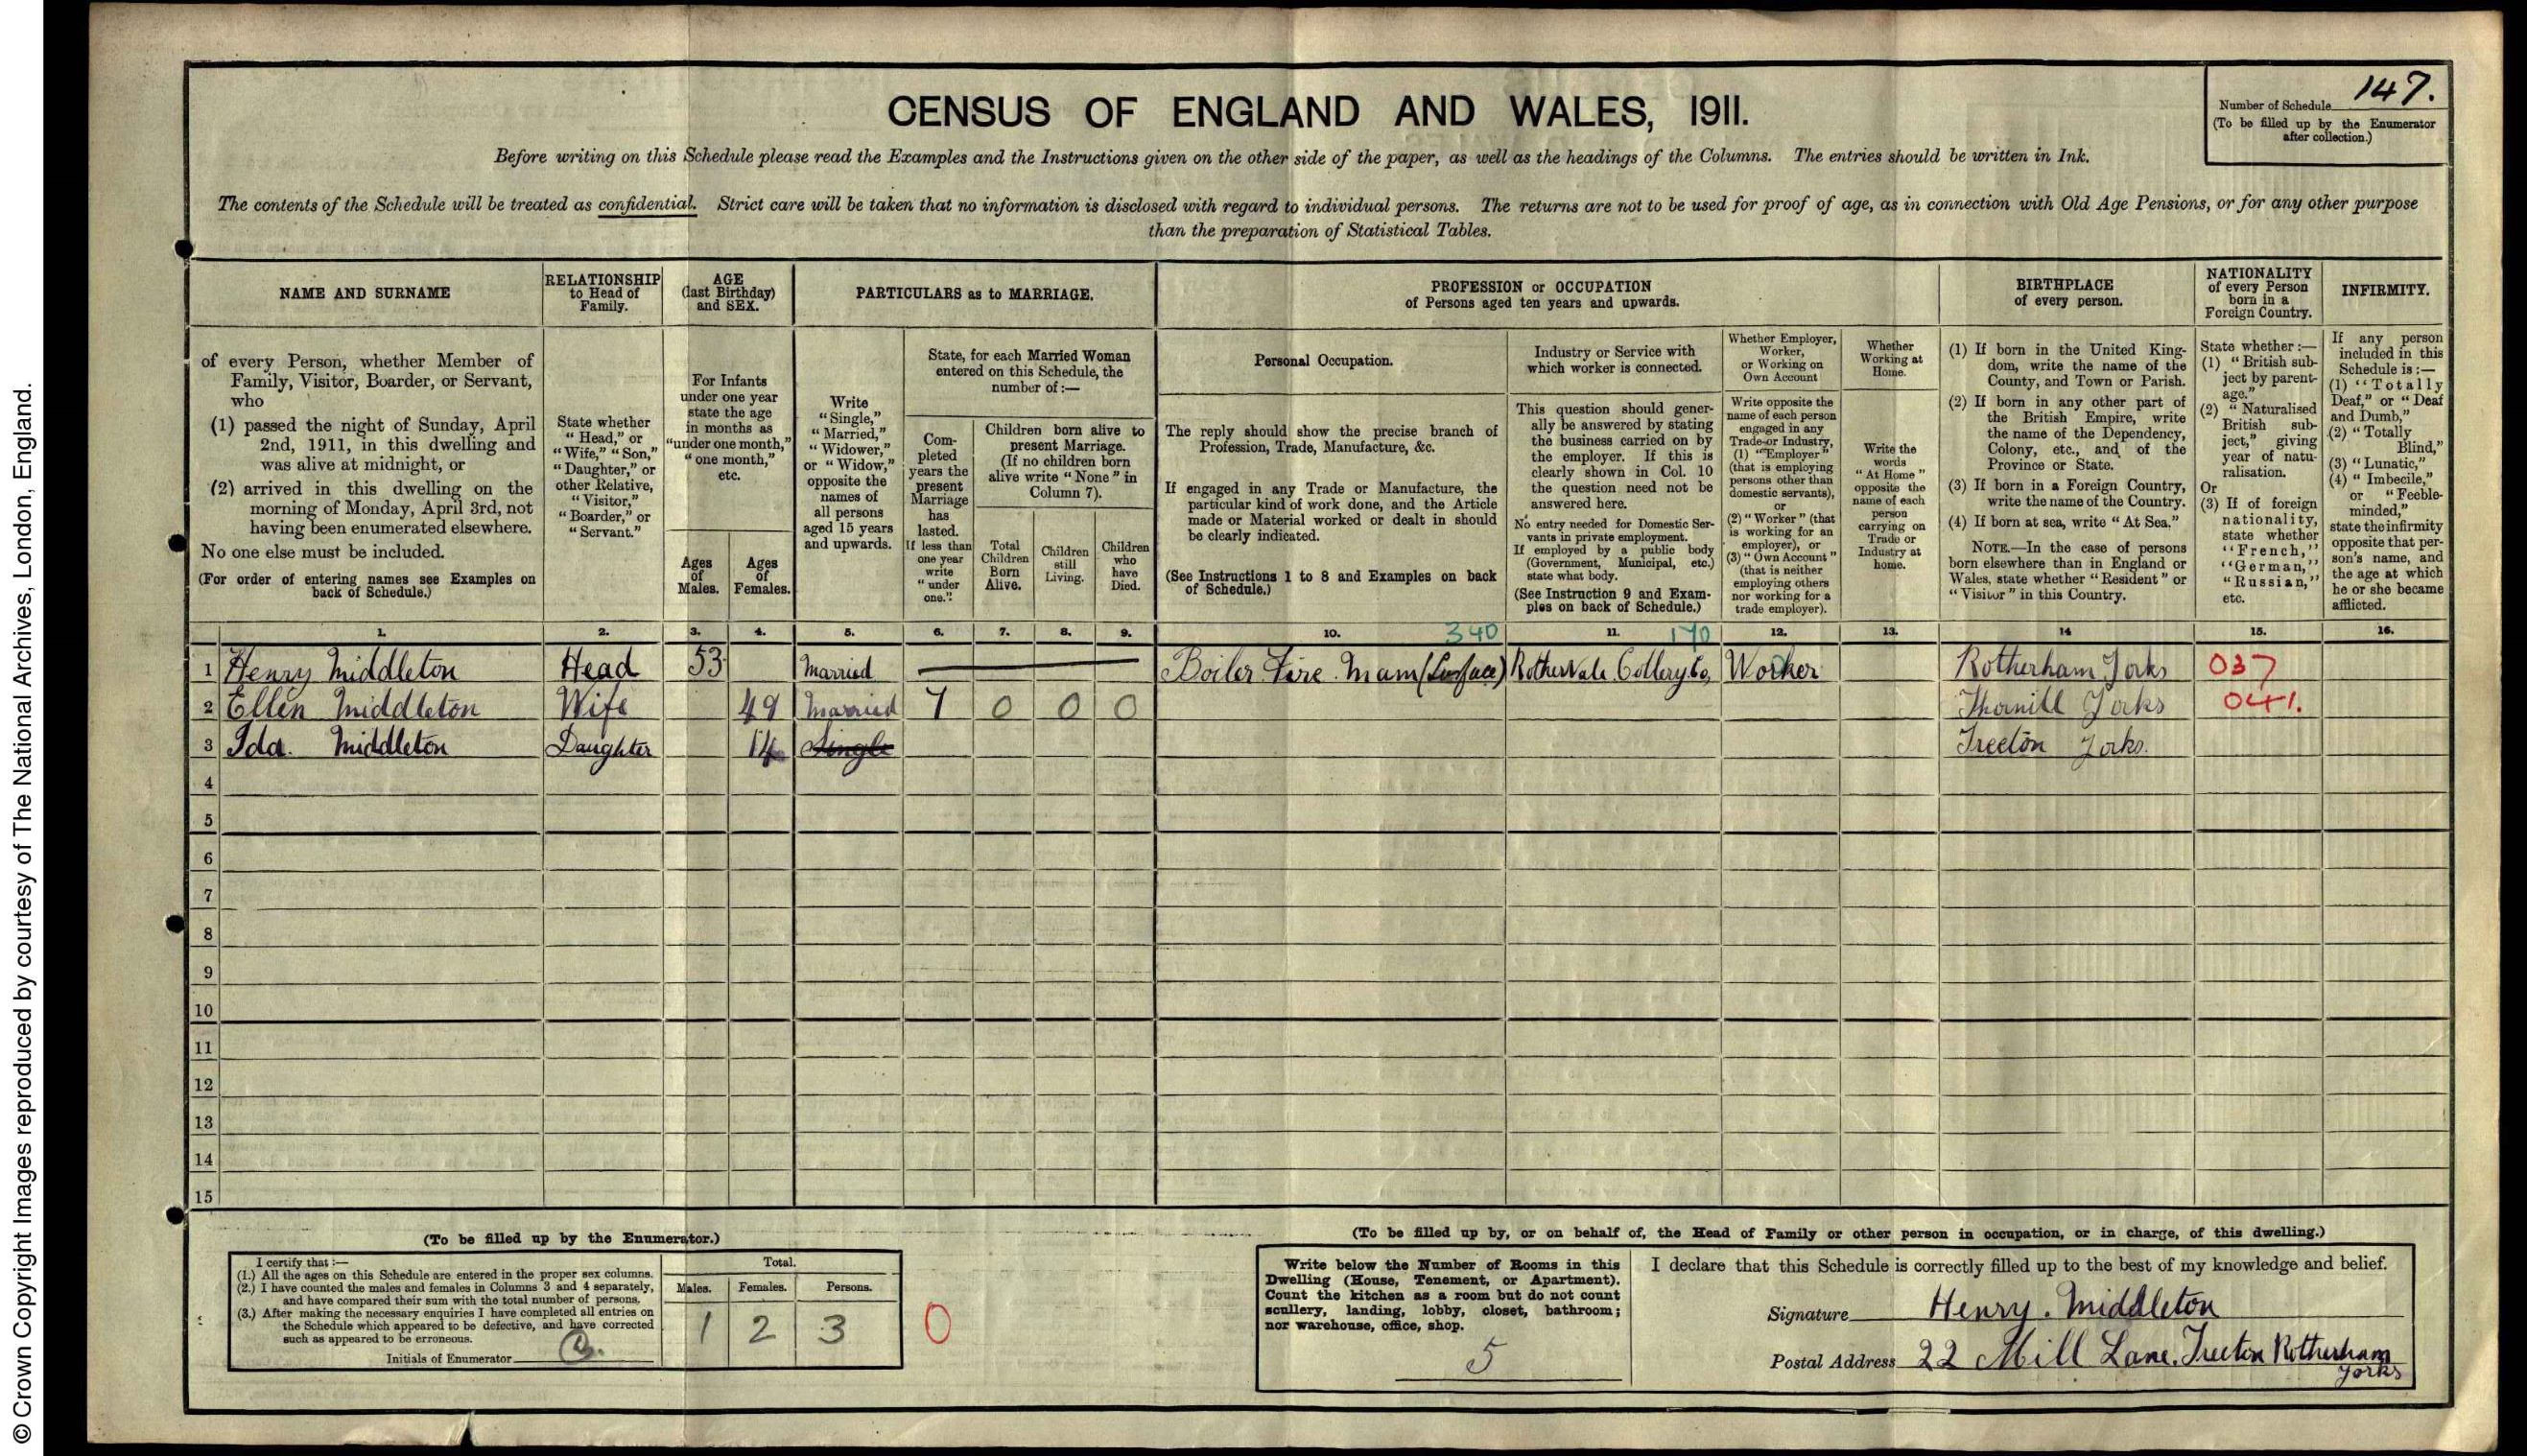 © Crown Copyright Images reproduced by courtesy of The National Archives, London, England.
CENSUS OF ENGLAND AND WALES, 1911.
Number of Schedule 147.
(To be filled up by the Enumerator after collection.)
Before writing on this Schedule please read the Examples and the Instructions given on the other side of the paper, as well as the headings of the Columns. The entries should be written in Ink.
The contents of the Schedule will be treated as confidential. Strict care will be taken that no information is disclosed with regard to individual persons. The returns are not to be used for proof of age, as in connection with Old Age Pensions, or for any other purpose
than the preparation of Statistical Tables.
NAME AND SURNAME
of every Person, whether Member of
Family, Visitor, Boarder, or Servant,
who
(1) passed the night of Sunday, April
2nd, 1911, in this dwelling and
was alive at midnight, or
(2) arrived in this dwelling on the
morning of Monday, April 3rd, not
having been enumerated elsewhere.
No one else must be included.
(For order of entering names see Examples on
back of Schedule.)
RELATIONSHIP
to Head of
Family.
State whether
"Head," or
"Wife," "Son,"
"Daughter," or
other Relative,
"Visitor,"
"Boarder," or
"Servant."
AGE
(last Birthday)
and SEX.
For Infants
under one year
state the age
in months as
"under one month,"
"one month,"
etc.
Ages
of
Males.
Ages
of
Females.
PARTICULARS as to MARRIAGE.
Write
"Single,"
"Married,"
"Widower,"
or "Widow,"
opposite the
names of
all persons
aged 15 years
and upwards.
State, for each Married Woman
entered on this Schedule, the
number of:—
Com-
pleted
years the
present
Marriage
has
lasted.
If less than
one year
write
"under
one."
Children born alive to
present Marriage.
(If no children born
alive write "None" in
Column 7).
Total
Children
Born
Alive.
Children
still
Living.
Children
who
have
Died.
PROFESSION or OCCUPATION
of Persons aged ten years and upwards.
Personal Occupation.
The reply should show the precise branch of
Profession, Trade, Manufacture, &c.
If engaged in any Trade or Manufacture, the
particular kind of work done, and the Article
made or Material worked or dealt in should
be clearly indicated.
(See Instructions 1 to 8 and Examples on back
of Schedule.)
Industry or Service with
which worker is connected.
This question should gener-
ally be answered by stating
the business carried on by
the employer. If this is
clearly shown in Col. 10
the question need not be
answered here.
No entry needed for Domestic Ser-
vants in private employment.
If employed by a public body
(Government, Municipal, etc.)
state what body.
(See Instruction 9 and Exam-
ples on back of Schedule.)
Whether Employer,
Worker,
or Working on
Own Account
Write opposite the
name of each person
engaged in any
Trade or Industry,
(1) "Employer"
(that is employing
persons other than
domestic servants),
or
(2) "Worker" (that
is working for an
employer), or
(3) "Own Account"
(that is neither
employing others
nor working for a
trade employer).
Whether
Working at
Home.
Write the
words
"At Home"
opposite the
name of each
person
carrying on
Trade or
Industry at
home.
BIRTHPLACE
of every person.
(1) If born in the United King-
dom, write the name of the
County, and Town or Parish.
(2) If born in any other part of
the British Empire, write
the name of the Dependency,
Colony, etc., and of the
Province or State.
(3) If born in a Foreign Country,
write the name of the Country.
(4) If born at sea, write "At Sea."
NOTE.—In the case of persons
born elsewhere than in England or
Wales, state whether "Resident" or
"Visitor" in this Country.
NATIONALITY
of every Person
born in a
Foreign Country.
State whether:—
(1) "British sub-
ject by parent-
age."
(2) "Naturalised
British sub-
ject," giving
year of natu-
ralisation.
Or
(3) If of foreign
nationality,
state whether
"French,"
"German,"
"Russian,"
etc.
INFIRMITY.
If any person
included in this
Schedule is:—
(1) "Totally
Deaf," or "Deaf
and Dumb,"
(2) "Totally
Blind,"
(3) "Lunatic,"
(4) "Imbecile,"
or "Feeble-
minded,"
state the infirmity
opposite that per-
son's name, and
the age at which
he or she became
afflicted.
1. 2. 3. 4. 5. 6. 7. 8. 9. 10. 340 11. 170 12. 13. 14 15. 16.
1 Henry Middleton Head 53 Married Boiler Fire Mam (Surface) RotherVale Collery Co, Worker Rotherham Yorks 037
2 Ellen Middleton Wife 49 Married 7 0 0 0 Thornill Yorks 041.
3 Ida. Middleton Daughter 14 Single Treeton Yorks.
4
5
6
7
8
9
10
11
12
13
14
15
(To be filled up by the Enumerator.)
I certify that:—
(1.) All the ages on this Schedule are entered in the proper sex columns.
(2.) I have counted the males and females in Columns 3 and 4 separately,
and have compared their sum with the total number of persons.
(3.) After making the necessary enquiries I have completed all entries on
the Schedule which appeared to be defective, and have corrected
such as appeared to be erroneous.
Initials of Enumerator
Total.
Males. Females. Persons.
1 2 3 0
(To be filled up by, or on behalf of, the Head of Family or other person in occupation, or in charge, of this dwelling.)
Write below the Number of Rooms in this
Dwelling (House, Tenement, or Apartment).
Count the kitchen as a room but do not count
scullery, landing, lobby, closet, bathroom;
nor warehouse, office, shop.
5
I declare that this Schedule is correctly filled up to the best of my knowledge and belief.
Signature Henry. Middleton
Postal Address 22 Mill Lane. Treeton Rotherham
Yorks